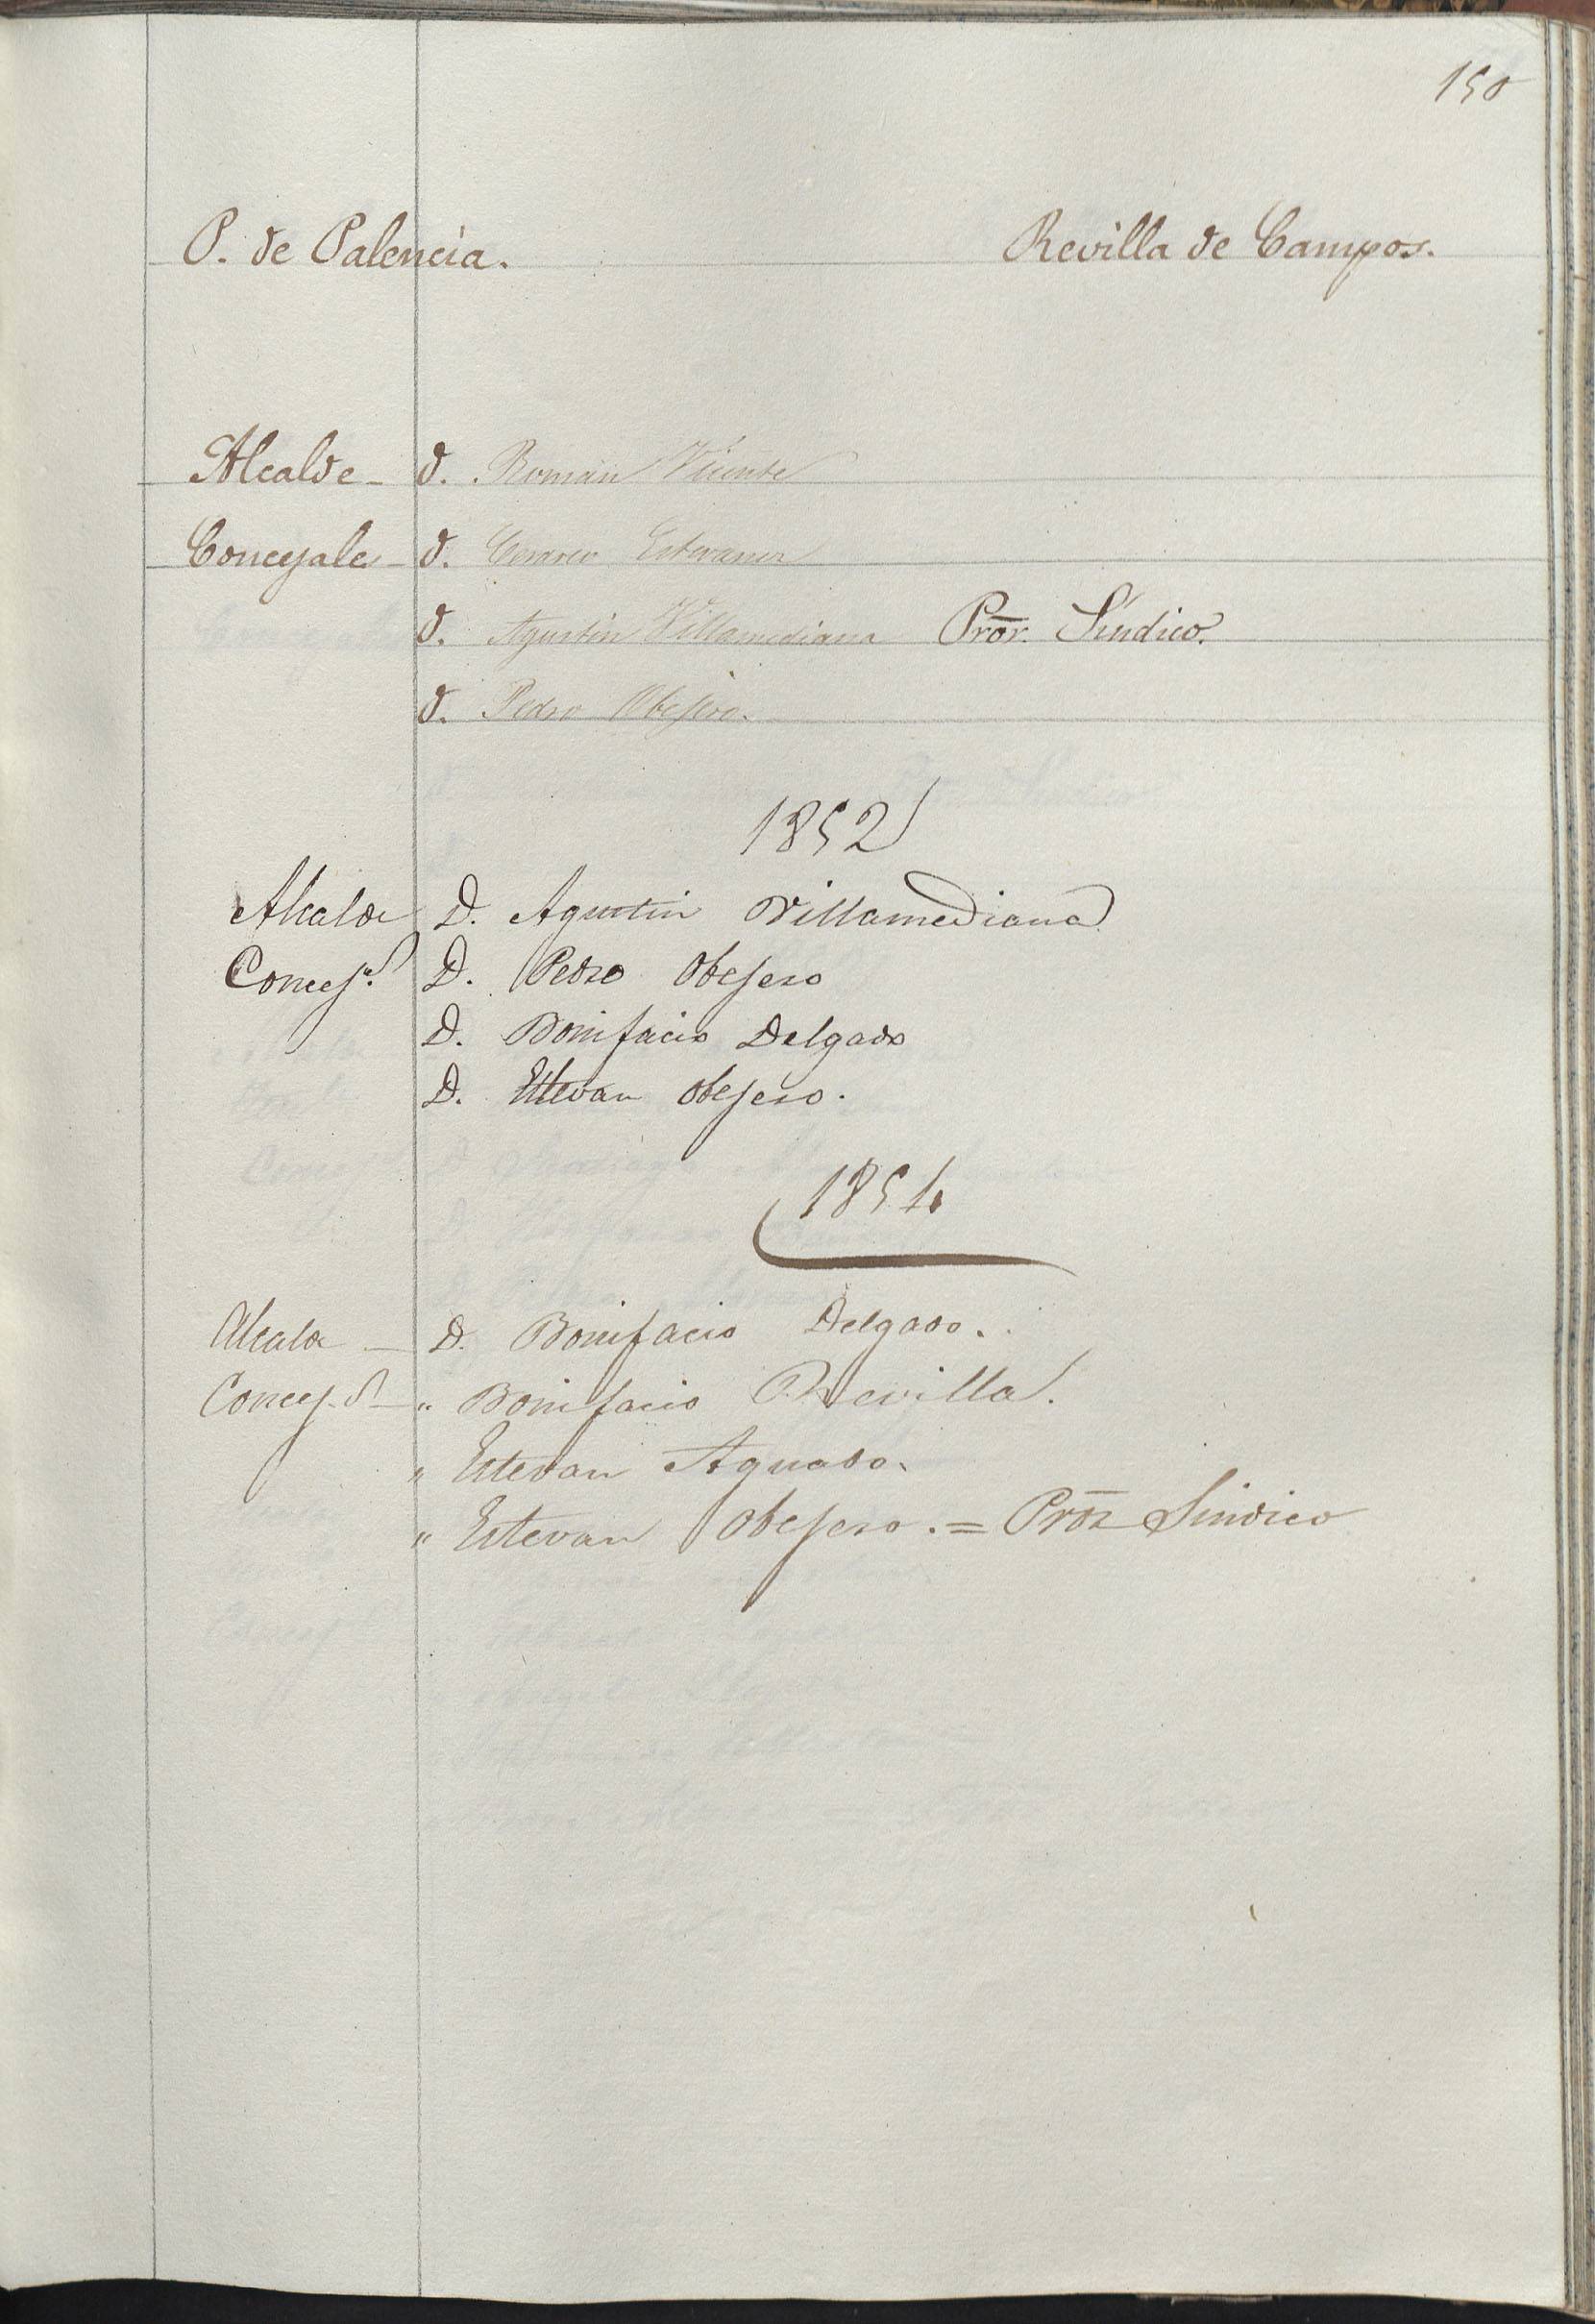 150
P. de Palencia. Revilla de Campos.
Alcalde - D. Román Vicente
Concejale - D. Estevanez
D. Agustin Villamediana Pror. Síndico.
D. Pedro Obejero.
1852
Alcalde D. Agustin Villamediana
Concej.s D. Pedro Obejero
D. Bonifacio Delgado
D. Estevan Obejero.
1854
Alcalde - D. Bonifacio Delgado.
Concej.s - " Bonifacio Revilla.
" Estevan Aguado.
" Estevan Obejero. = Pror Sindico